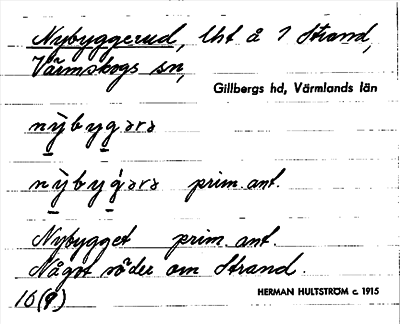 Nybyggerud, lht å 7 Strand,
Värmskogs sn,
Gillbergs hd, Värmlands län
nỳbygərə
nỳbyǵərə prim. ant.
Nybygget prim. ant.
Något söder om Strand.
16(9)
HERMAN HULTSTRÖM c. 1915